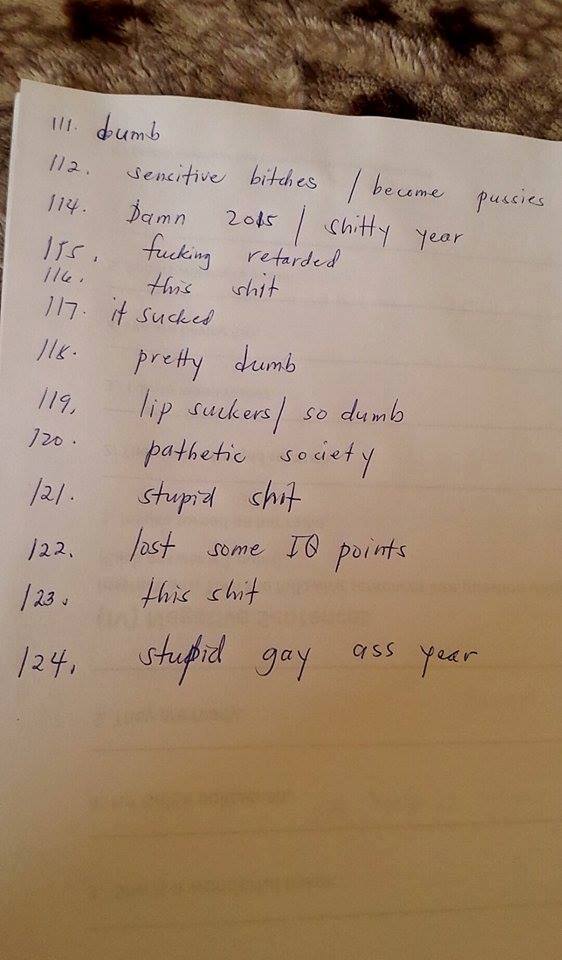 111. dumb
112. sensitive bitches / become pussies
114. Damn 2015 / shitty year
115. fucking retarded
116. this shit
117. it sucked
118. pretty dumb
119. lip suckers / so dumb
120. pathetic society
121. stupid shit
122. lost some IQ points
123. this shit
(IV) Negative Sentences
124. stupid gay ass year